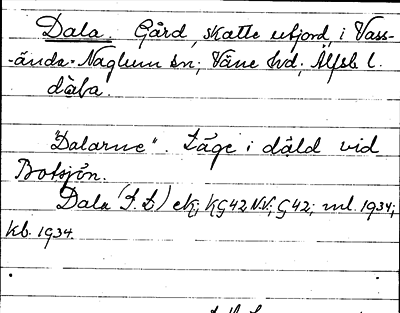 Dala. Gård, skatte utjord, i Vass-
-ända-Naglum sn; Väne hd; Älfsb. l.
dàba.
"Dalarne". Läge i däld vid
Botsjön.
Dala (J. L.) ek; KG42 N.V.; G42; ml. 1934;
kb. 1934.